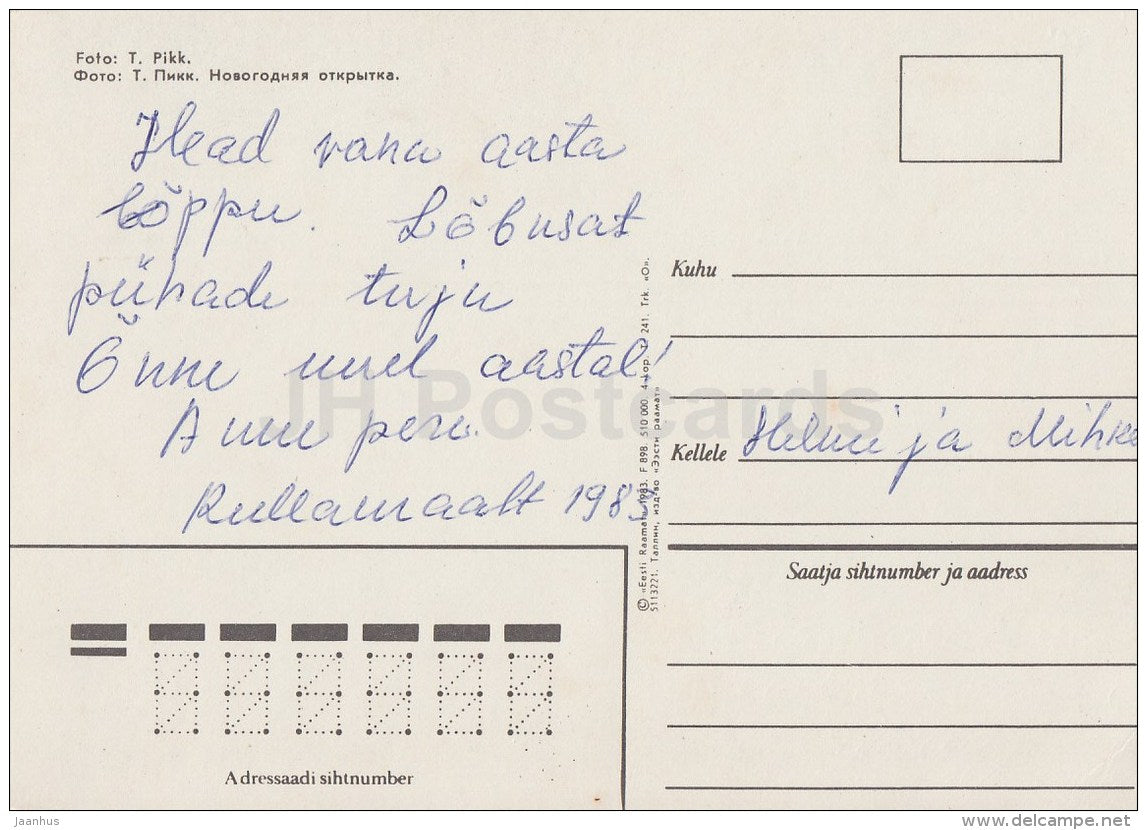 Foto: T. Pikk.
Фото: Т. Пикк. Новогодняя открытка.
Head vana aasta
lõppu. Lõbusat
pühade tuju
Õnne uuel aastal!
Anu pere.
Kullamaalt 198
Kuhu
Kellele Helmi ja Mihke
Saatja sihtnumber ja aadress
Adressaadi sihtnumber
© «Eesti Raamat» 1983. F 898. 510 000. 4 kop. T. 241. Trk. «O».
5113221. Таллин, изд-во «Ээсти раамат»
JH Postcards
Jaanhus
delcampe.net